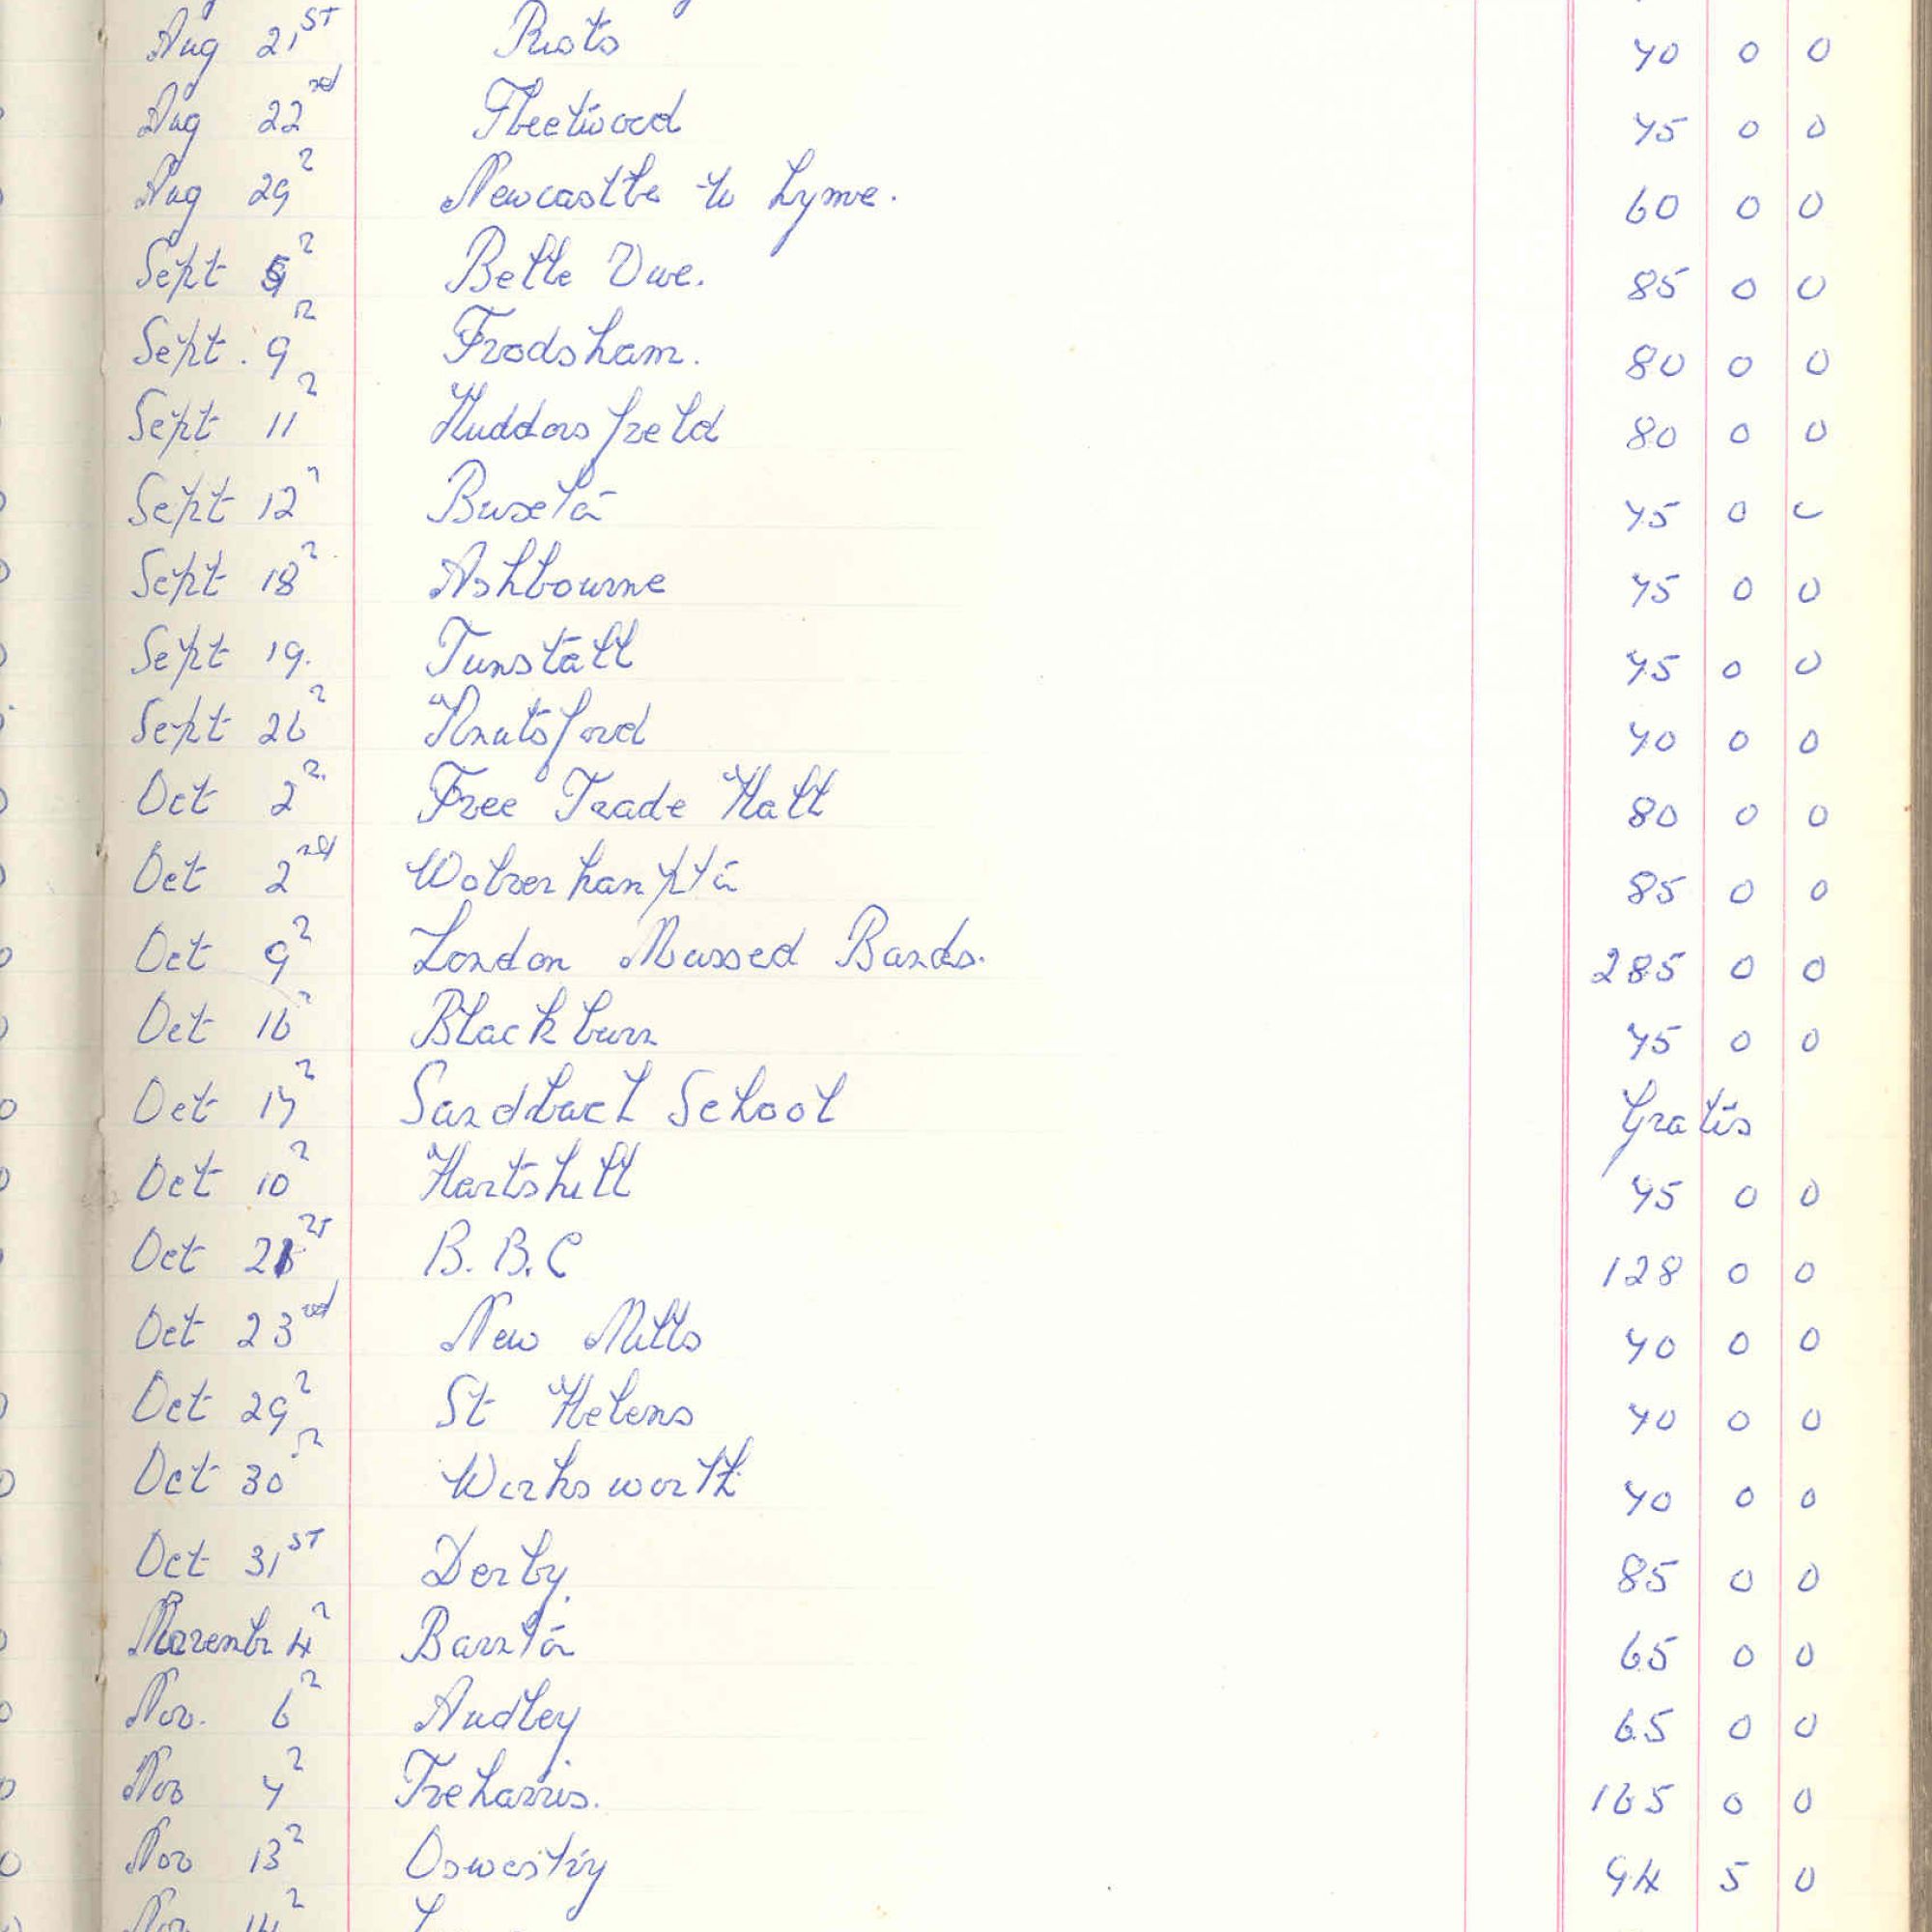 Aug 21ST Rusts 70 0 0
Aug 22nd Fleetwood 75 0 0
Aug 29 Newcastle u Lyme. 60 0 0
Sept 5 Belle Vue. 85 0 0
Sept. 9 Frodsham. 80 0 0
Sept 11 Huddersfield 80 0 0
Sept 12 Buxton 75 0 0
Sept 18 Ashbourne 75 0 0
Sept 19. Tunstall 75 0 0
Sept 26 Knutsford 70 0 0
Oct 2 Free Trade Hall 80 0 0
Oct 2nd Wolverhampton 85 0 0
Oct 9 London Massed Bands. 285 0 0
Oct 16 Blackburn 75 0 0
Oct 17 Sandbach School Gratis
Oct 10 Hartshill 75 0 0
Oct 21st B.B.C 128 0 0
Oct 23rd New Mills 70 0 0
Oct 29 St Helens 70 0 0
Oct 30 Wirksworth 70 0 0
Oct 31ST Derby. 85 0 0
Novembr 4 Barnton 65 0 0
Nov. 6 Audley 65 0 0
Nov 7 Treharris. 165 0 0
Nov 13 Oswestry 94 5 0
Nov 14